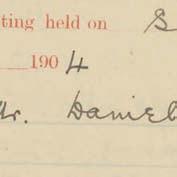 ting held on S
190 4
Mr. Daniel